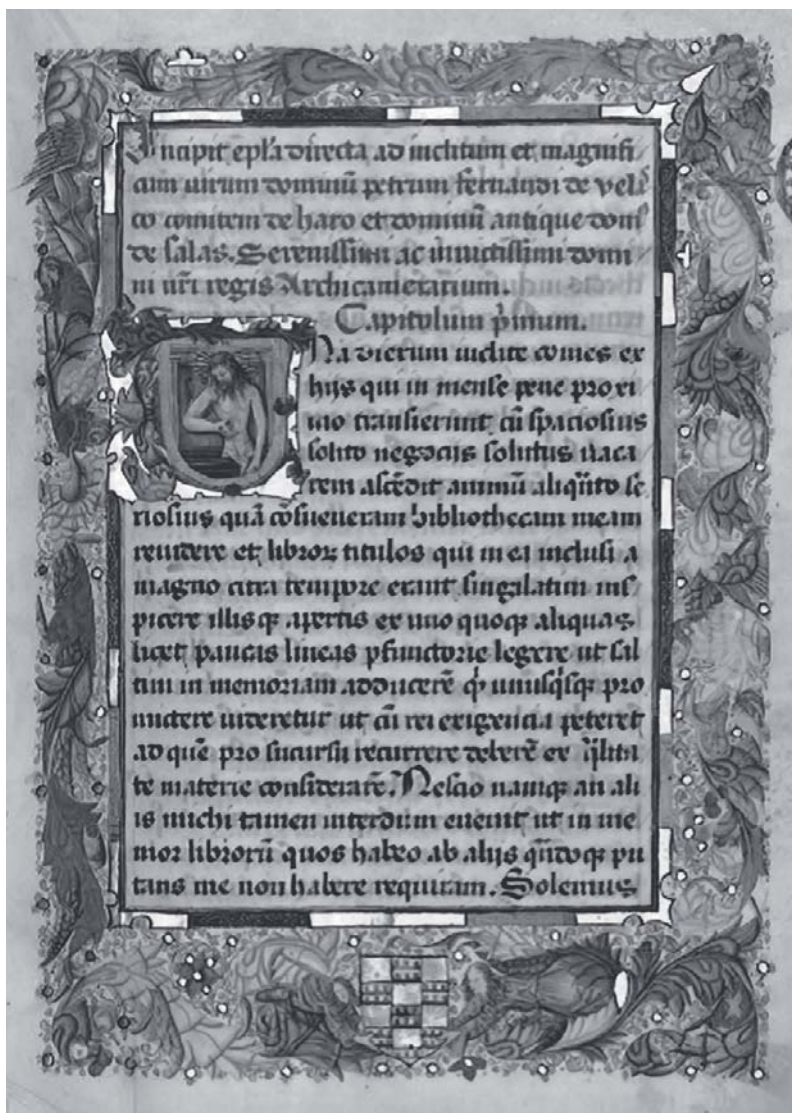 Incipit ep̅l'a directa ad inclitum et magnifi
cum uirum dominu̅ petrum fernandi de vela̅s
co comitem de haro et dominu̅ antique dom9
de salas. Serenissimi ac inuictissimi domi
ni nr̅i regis Archicamerarium.
Capitulum p̅imum.
Una dierum inclite comes ex
hijs qui in mense pene proxi
mo transierunt cu̅ spaciosius
solito negocijs solutus uaca
rem asce̅dit animu̅ aliqn̅to se
riosius qua̅ co̅sueueram bibliothecam meam
reuidere et libroꝝ titulos qui in ea inclusi a
magno citra tempore erant singulatim ins
picere illisqꝫ apertis ex uno quoqꝫ aliquas
licet paucas lineas ꝑfunctorie legere ut sal
tim in memoriam adducere̅ unusq̅sqꝫ pro
mictere uideretur ut cu̅ rei exigencia peteret
ad que̅ pro sucursu recurrere debere̅ ex q̅lita
te materie considerare̅. Nescio namqꝫ an ali
is michi tamen interdum euenit ut in me
moꝛ libroru̅ quos habeo ab alijs qn̅doqꝫ pu
tans me non habere requiram. Solemus